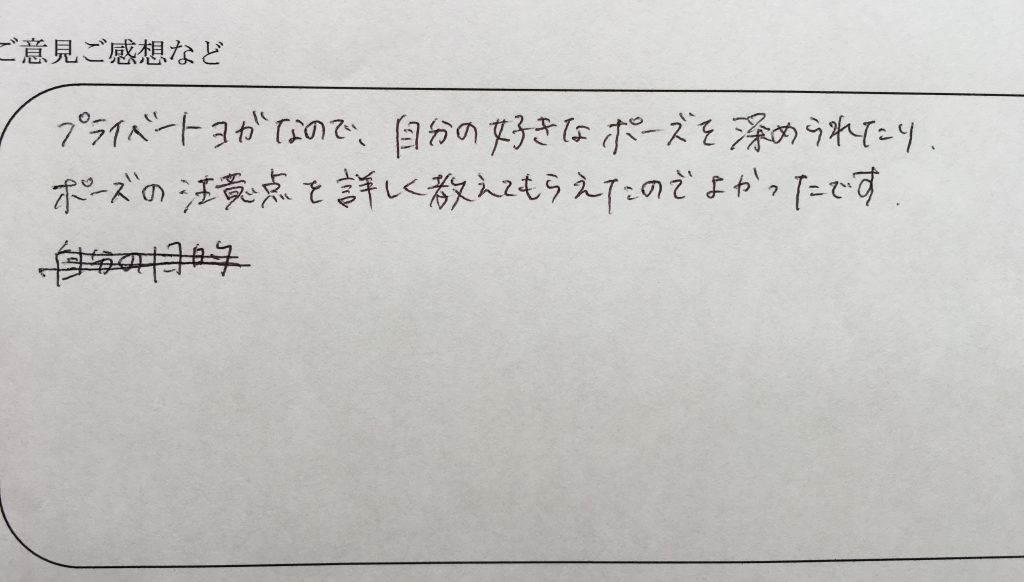 ご意見ご感想など
プライベートヨガなので、自分の好きなポーズを深められたり、
ポーズの注意点を詳しく教えてもらえたのでよかったです。
自分の